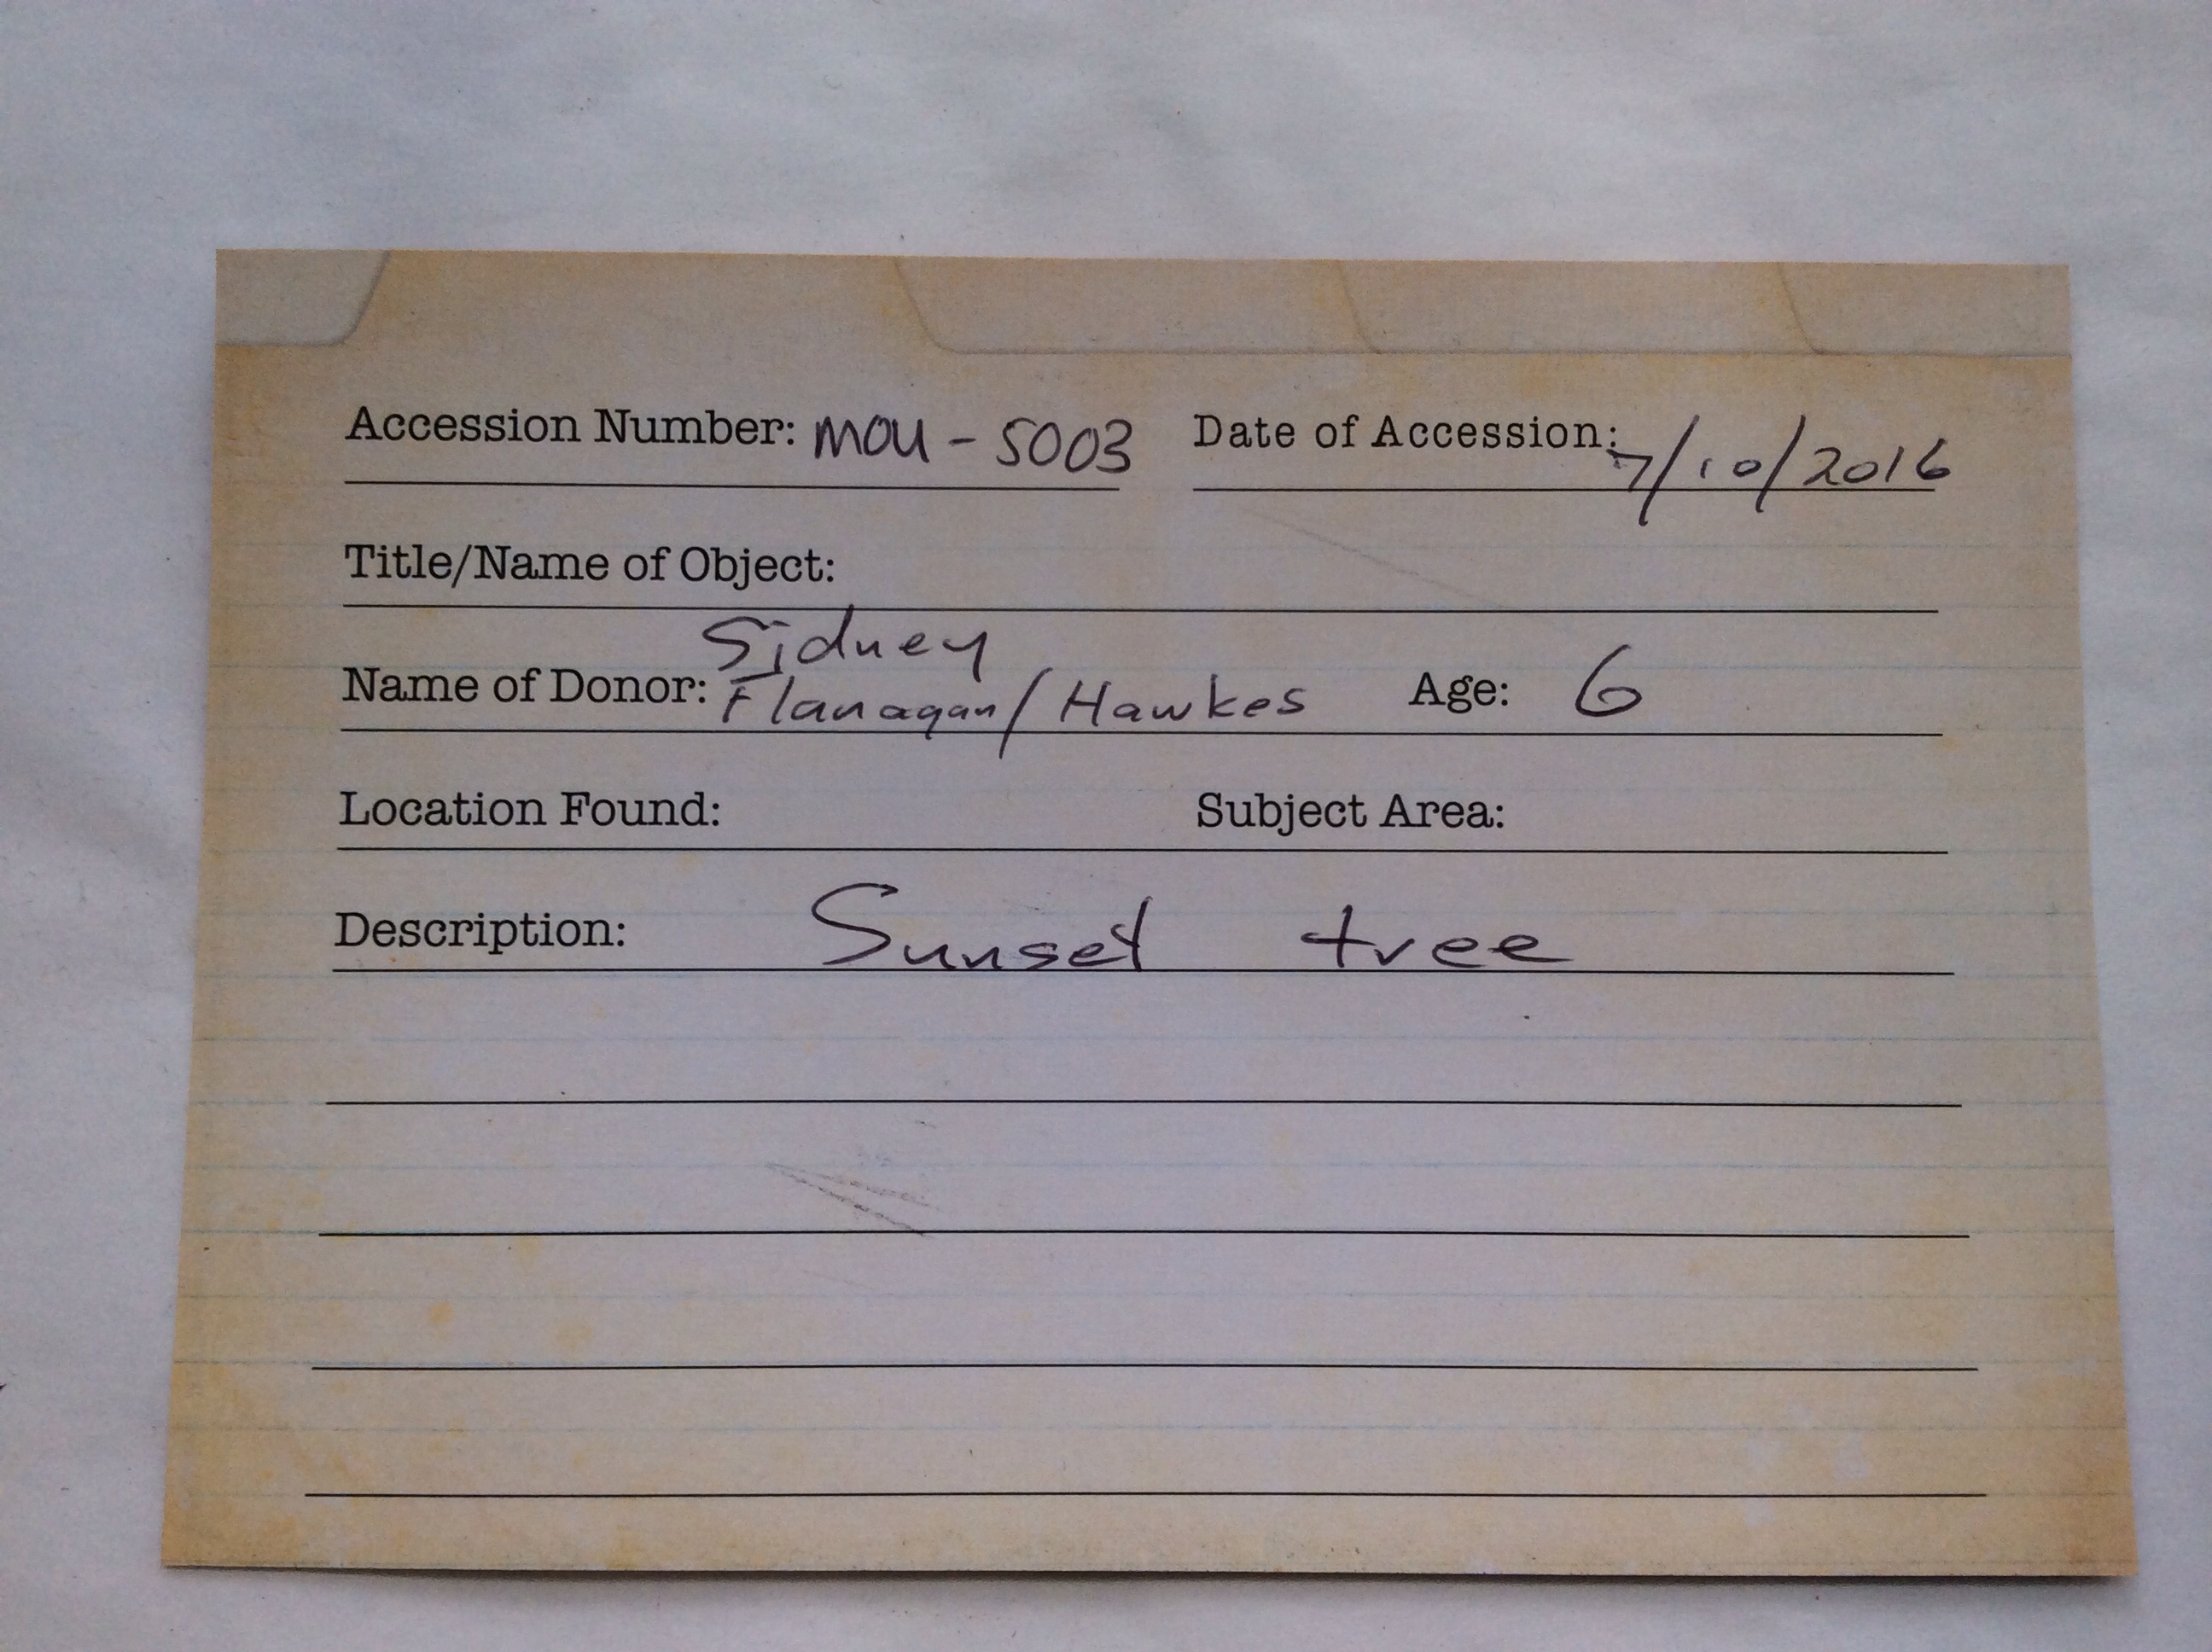 Accession Number: MOU - S003 Date of Accession: 7/10/2016
Title/Name of Object:
Sidney
Name of Donor: Flanagan/Hawkes Age: 6
Location Found: Subject Area:
Description: Sunset tree